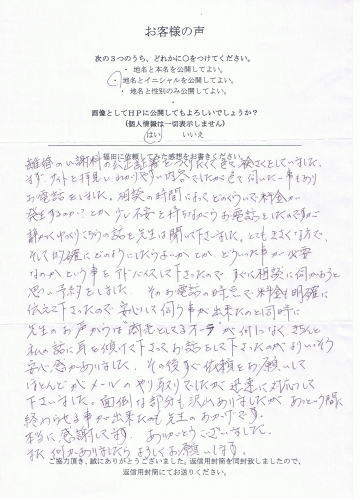 お客様の声
次の3つのうち、どれかに○をつけてください。
・地名と本名を公開してよい。
・地名とイニシャルを公開してよい。
・地名と性別のみ公開してよい。
画像としてHPに公開してもよろしいでしょうか?
(個人情報は一切表示しません)
はい いいえ
福田に依頼してみた感想をお書きください。
離婚の慰謝料の公正証書をつくりたくて色々検さくをしていました。
まずサイトを拝見し、わかりやすい内容でしたが色々伺いたい事もあり
お電話をしました。相談の時間によってどのくらいで料金が
発生するのか?とか少し不安を持ちながらお電話をしたのですが
静かにゆっくりこちらの話を先生は聞いて下さいました。とても
そして的確にどのようにしたらよいか とか どういった事が必要
なのかという事をアドバイスして下さったので すぐに相談に伺おうと
思い予約をしました。そのお電話の時点で料金も明確に
伝えて下さったので 安心して伺う事が出来たのと同時に
先生のお声からは 落ち着き きちんと
私の話に耳を傾けて下さってお話をして下さったのでよりいっそう
安心感がありました。その後すぐ依頼をお願いして
ほとんどがメールのやり取りでしたが迅速に対応して
下さいました。面倒な部分も沢山ありましたが あっという間に
終わらせる事が出来たのも先生のおかげです。
本当に感謝してます。ありがとうございました。
また何かありましたらよろしくお願いします。
ご協力頂き、誠にありがとうございました。返信用封筒を同封致しましたので、
返信用封筒にてお送りください。